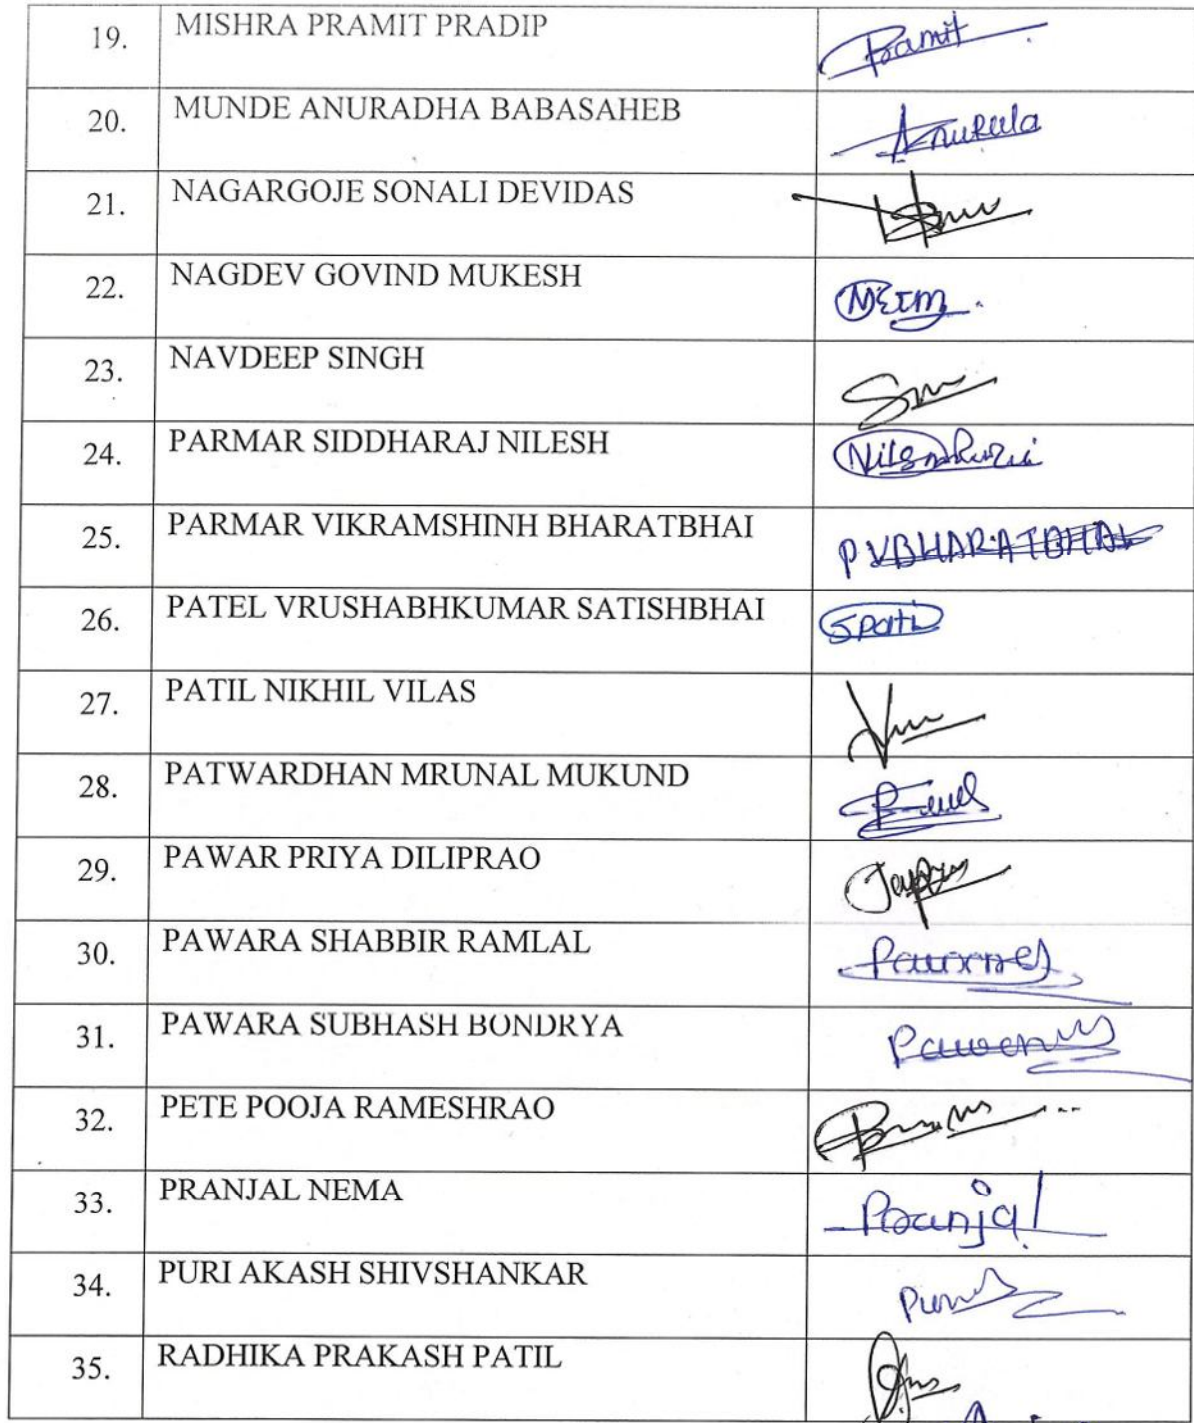 19. MISHRA PRAMIT PRADIP Pramit
20. MUNDE ANURADHA BABASAHEB
21. NAGARGOJE SONALI DEVIDAS
22. NAGDEV GOVIND MUKESH
23. NAVDEEP SINGH
24. PARMAR SIDDHARAJ NILESH
25. PARMAR VIKRAMSHINH BHARATBHAI PVBHARATBHAI
26. PATEL VRUSHABHKUMAR SATISHBHAI
27. PATIL NIKHIL VILAS
28. PATWARDHAN MRUNAL MUKUND
29. PAWAR PRIYA DILIPRAO
30. PAWARA SHABBIR RAMLAL
31. PAWARA SUBHASH BONDRYA
32. PETE POOJA RAMESHRAO
33. PRANJAL NEMA Pranjal
34. PURI AKASH SHIVSHANKAR
35. RADHIKA PRAKASH PATIL